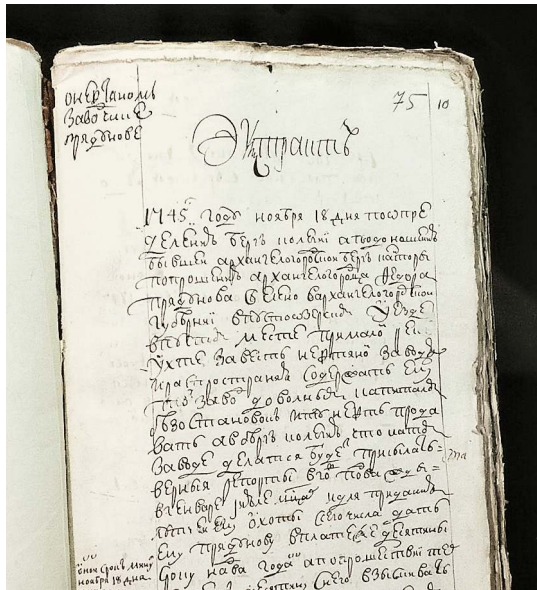 о нефтяномъ
заводе
прядунова
75
10
Экстрактъ
1745 году ноября 18 дня по опре
делению бергъ колегии а по доношению
бывшей архангелогородской бергъ канторы
по прошению архангелогородца Федора
прядунова велено в архангелогородской
губернии в пустозерском уезде
в пустом месте при малой реке
ухте завесть нефтяной завод
и распространя содержать ему
тот завод довольным капиталом
без остановок и ту нефть прода
вать а в бергъ колегию что на том
заводе делатся будет присылать
верныя репорты в году по два
в генваре июле и для придания
ему охоты сего числа дать
ему прядунову в платеже десятины
сроку на два года а по прошествии тех
сего взыскивать
оной срок минул
ноября 18 дня